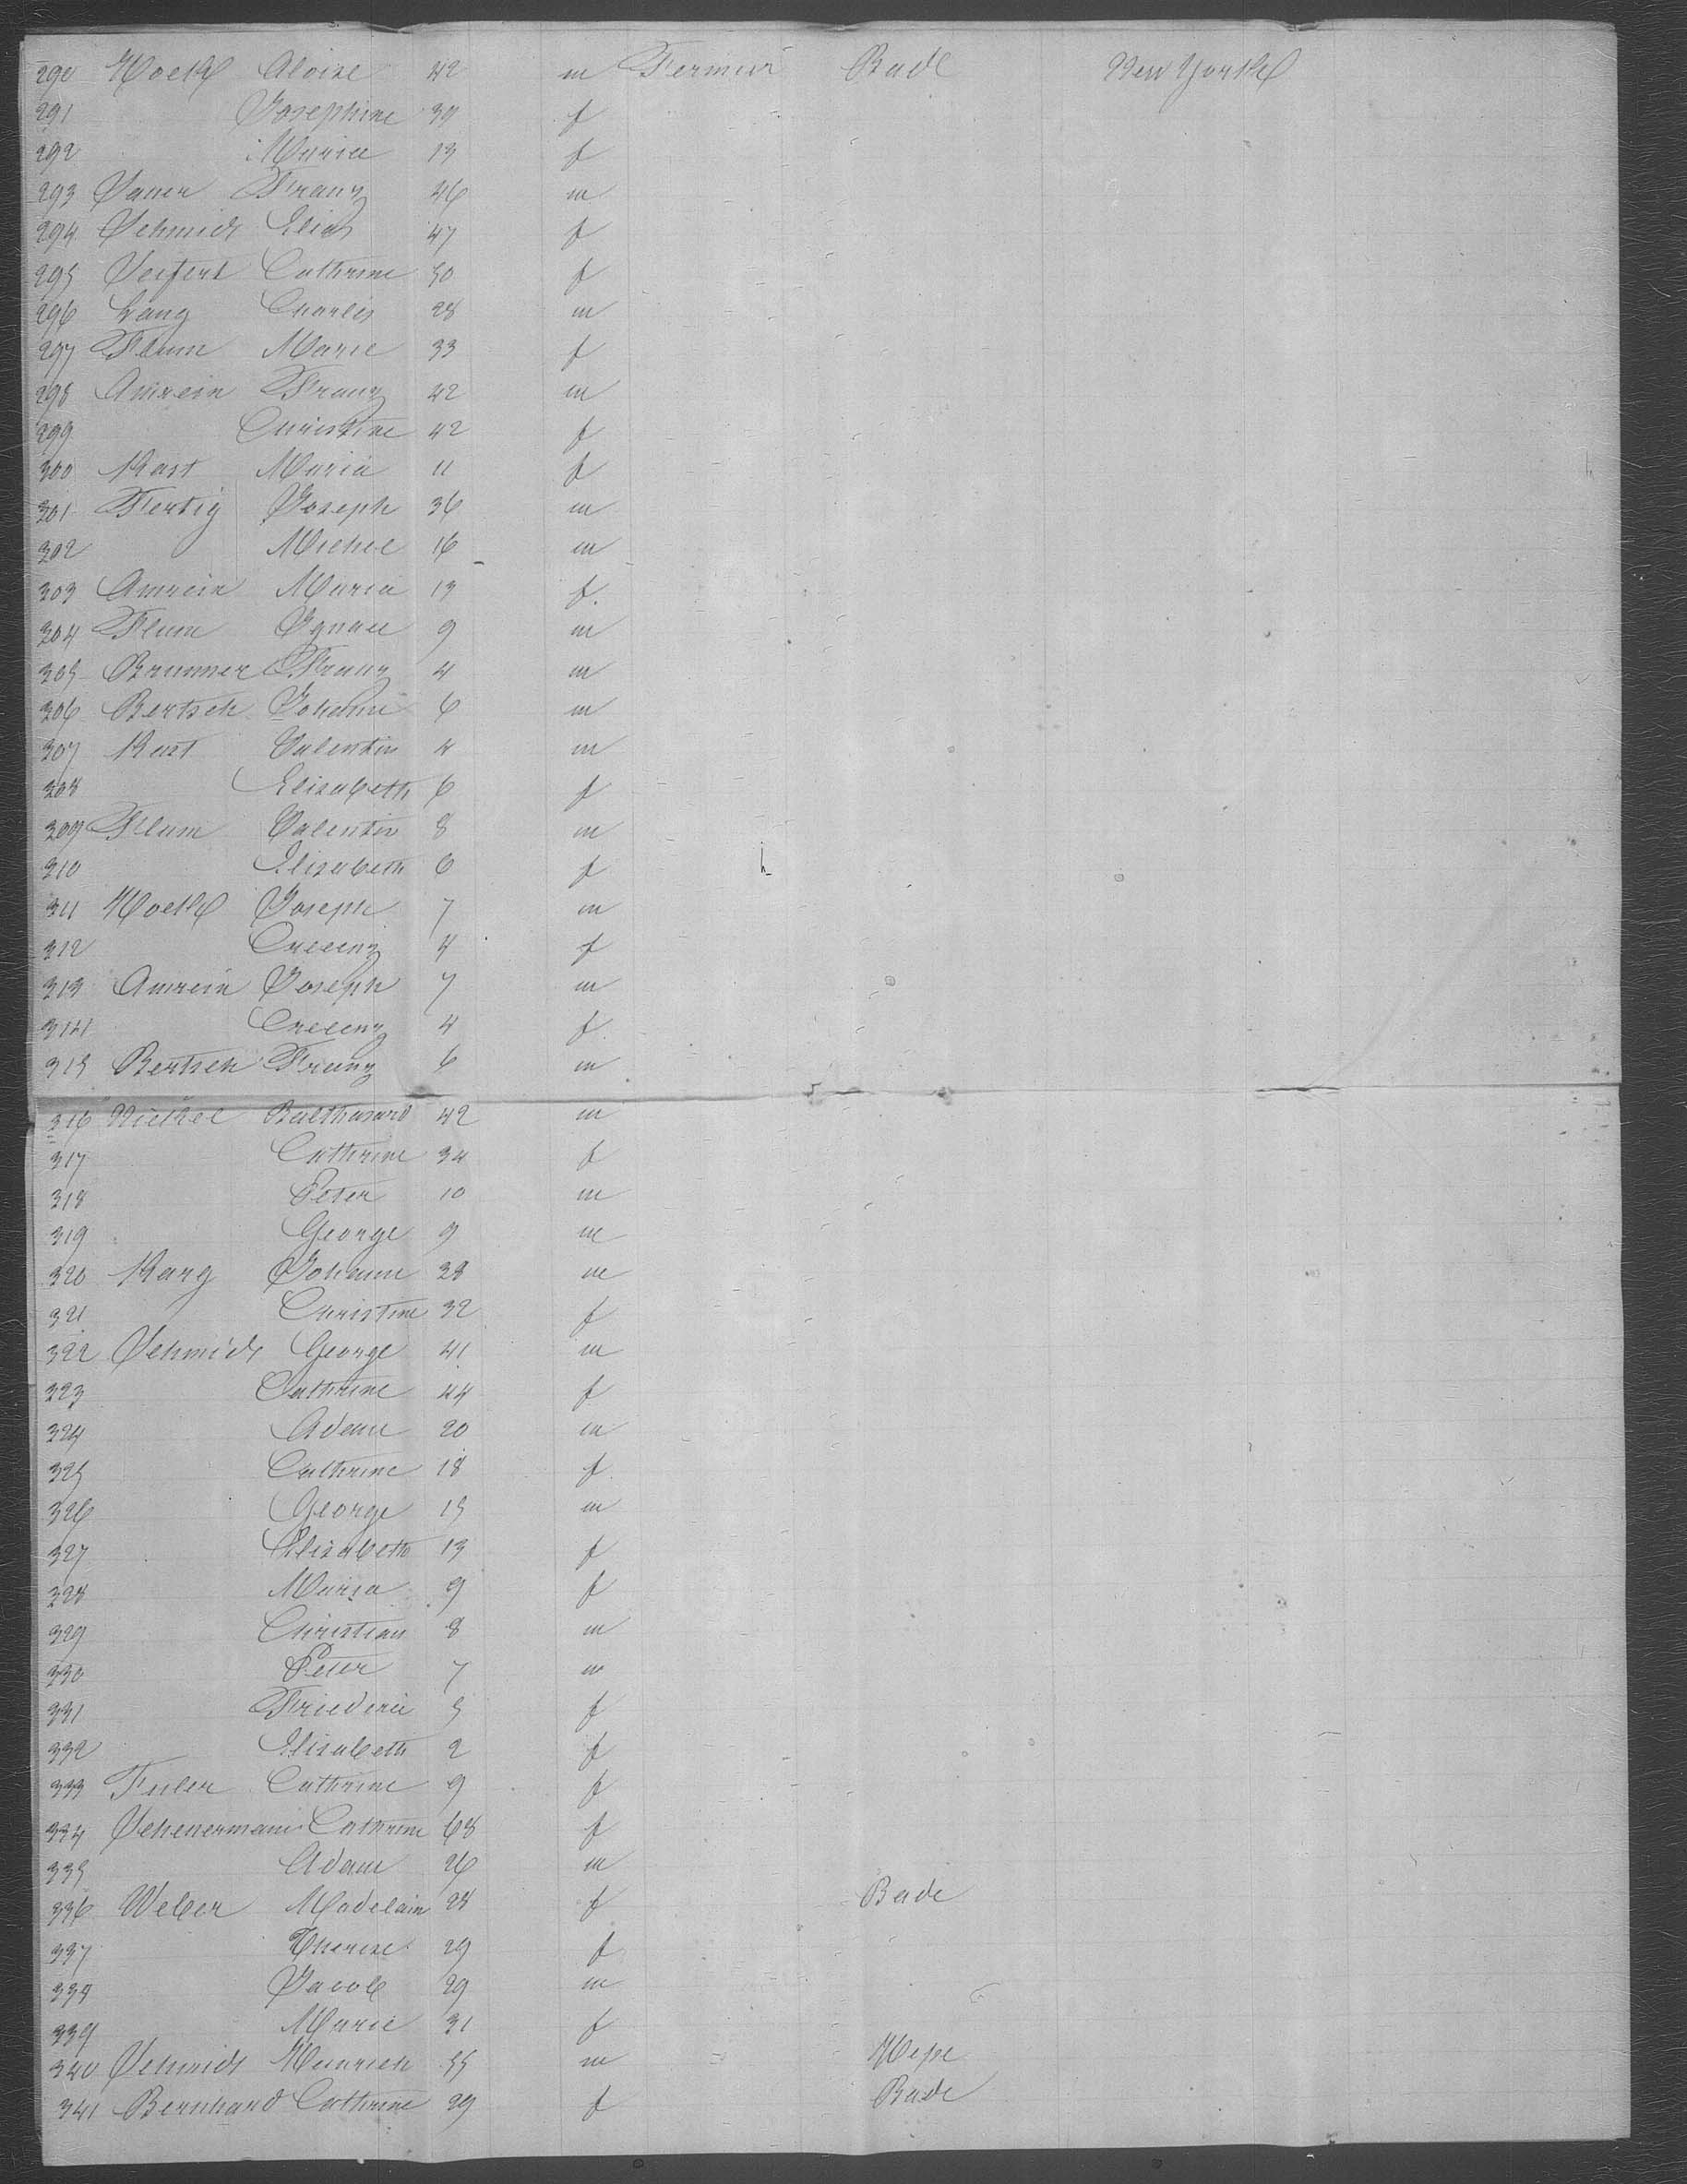 290 Hoelzl Aloise 42 m Fermier Bade New York
291 Josephine 39 f
292 Marie 13 f
293 Sauer Franz 46 m
294 Schmidt Elis 47 f
295 Seifert Cathrine 50 f
296 Lang Charles 28 m
297 Flum Marie 33 f
298 Amrein Franz 42 m
299 Christine 42 f
300 Kast Maria 11 f
301 Fertig Joseph 36 m
302 Michel 16 m
303 Amrein Maria 13 f.
304 Flum Ignace 9 m
305 Brunner Franz 4 m
306 Bertsch Johann 6 m
307 Kast Valentin 4 m
308 Elisabeth 6 f
309 Flum Valentin 8 m
310 Elisabeth 6 f
311 Joseph 7 m
312 Crecenz 4 f
313 Amrein Joseph 7 m
314 Crecenz 4 f
315 Bertsch Franz 6 m
316 Balthasard 42 m
317 Cathrine 34 f
318 Peter 10 m
319 George 9 m
320 Karg Johann 38 m
321 Christine 32 f
322 Schmidt George 41 m
323 Cathrine 44 f
324 Adam 20 m
325 Cathrine 18 f
326 George 15 m
327 Elisabeth 13 f
328 Maria 9 f
329 Christian 8 m
330 Peter 7 m
331 Friederic 5 f
332 Elisabeth 2 f
333 Cathrine 9 f
334 Scheuermann Cathrine 68 f
335 Adam 26 m
336 Weber Madelain 28 f Bade
337 Therese 29 f
338 Jacob 29 m
339 Marie 31 f
340 Schmidt Heinrich 55 m Hesse
341 Bernhard Cathrine 29 f Bade